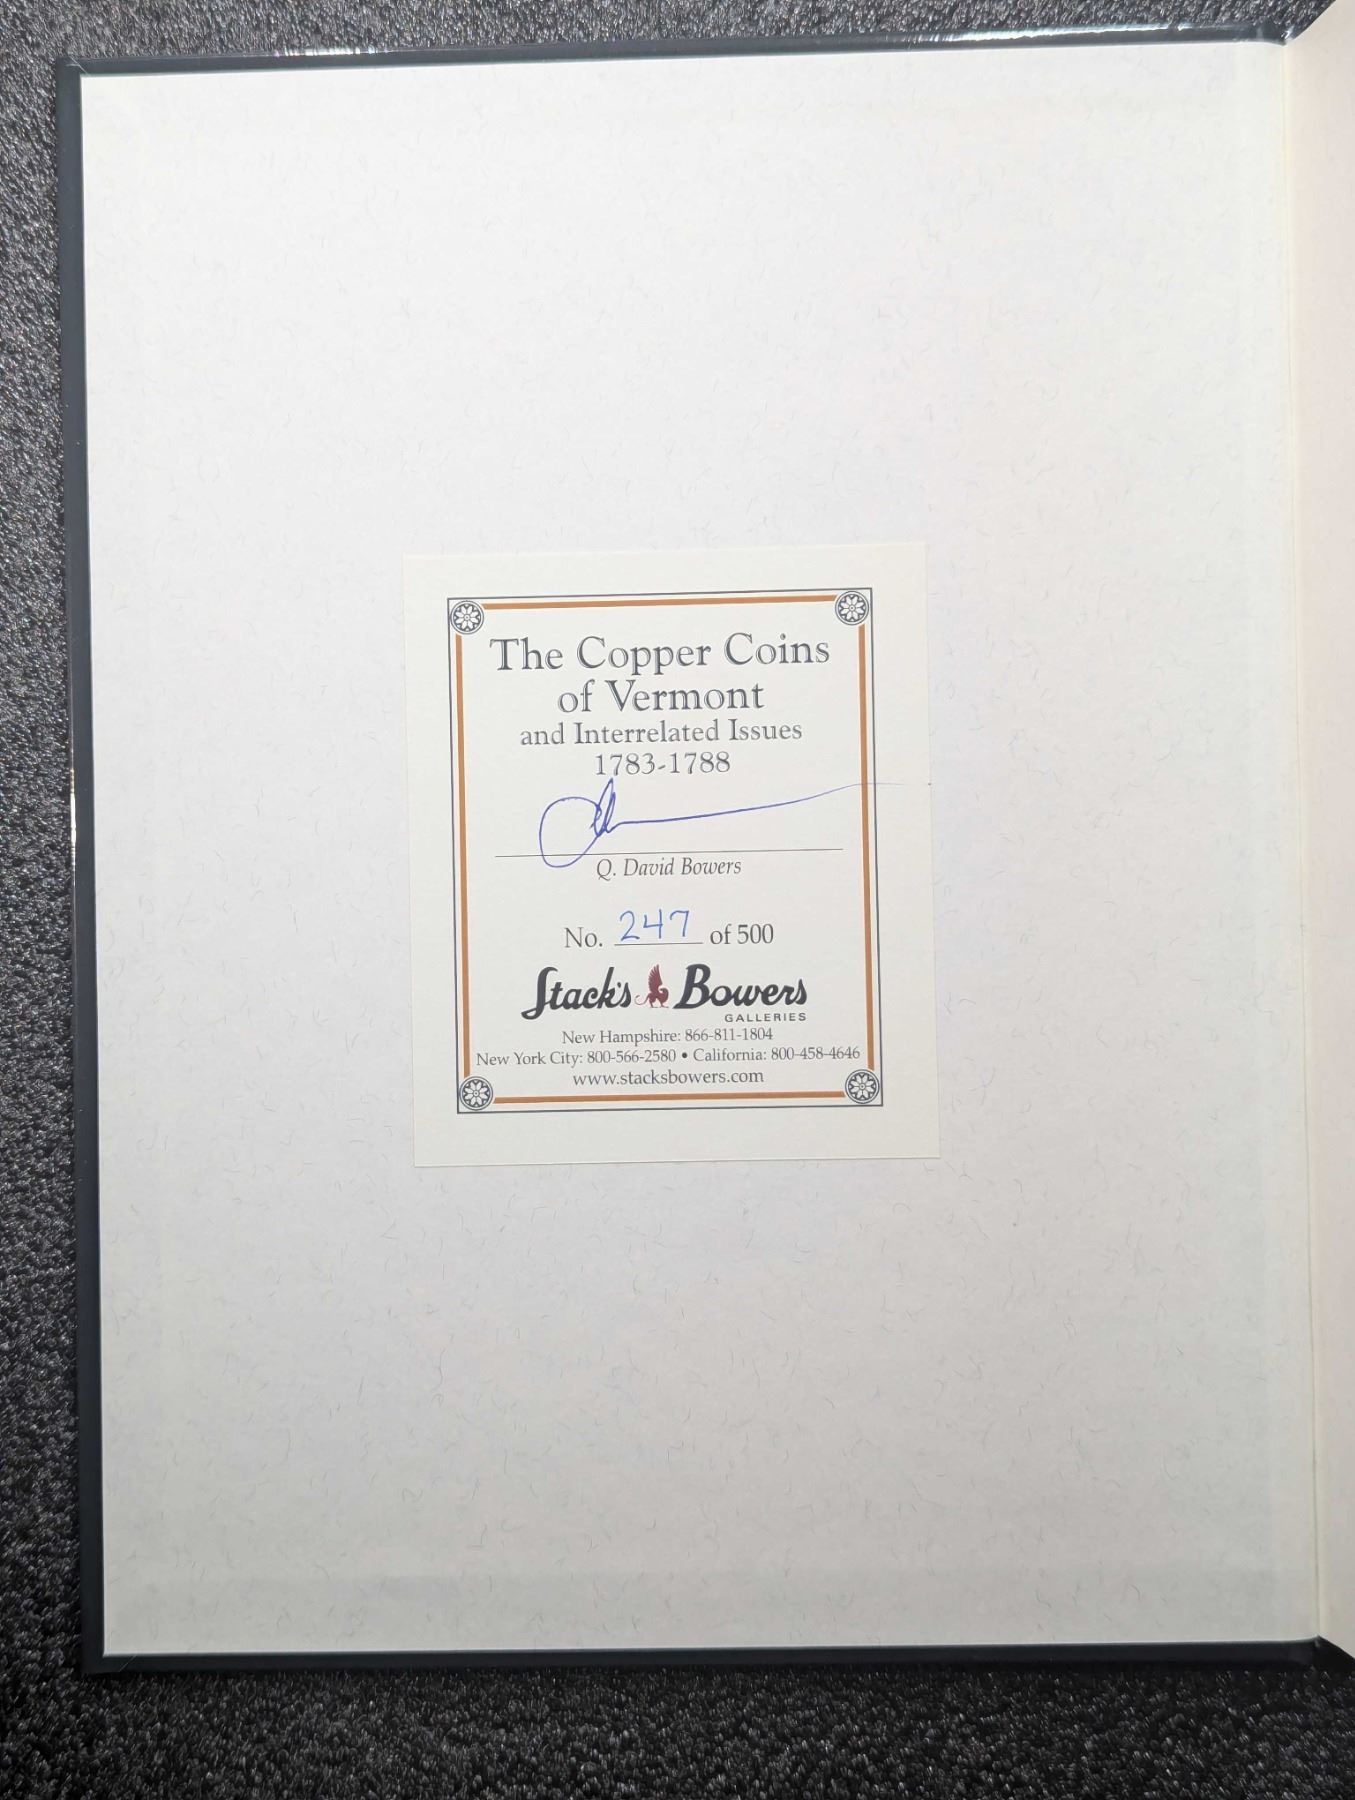 The Copper Coins
of Vermont
and Interrelated Issues
1783-1788
Q. David Bowers
No. 247 of 500
Stack's Bowers
GALLERIES
New Hampshire: 866-811-1804
New York City: 800-566-2580 • California: 800-458-4646
www.stacksbowers.com